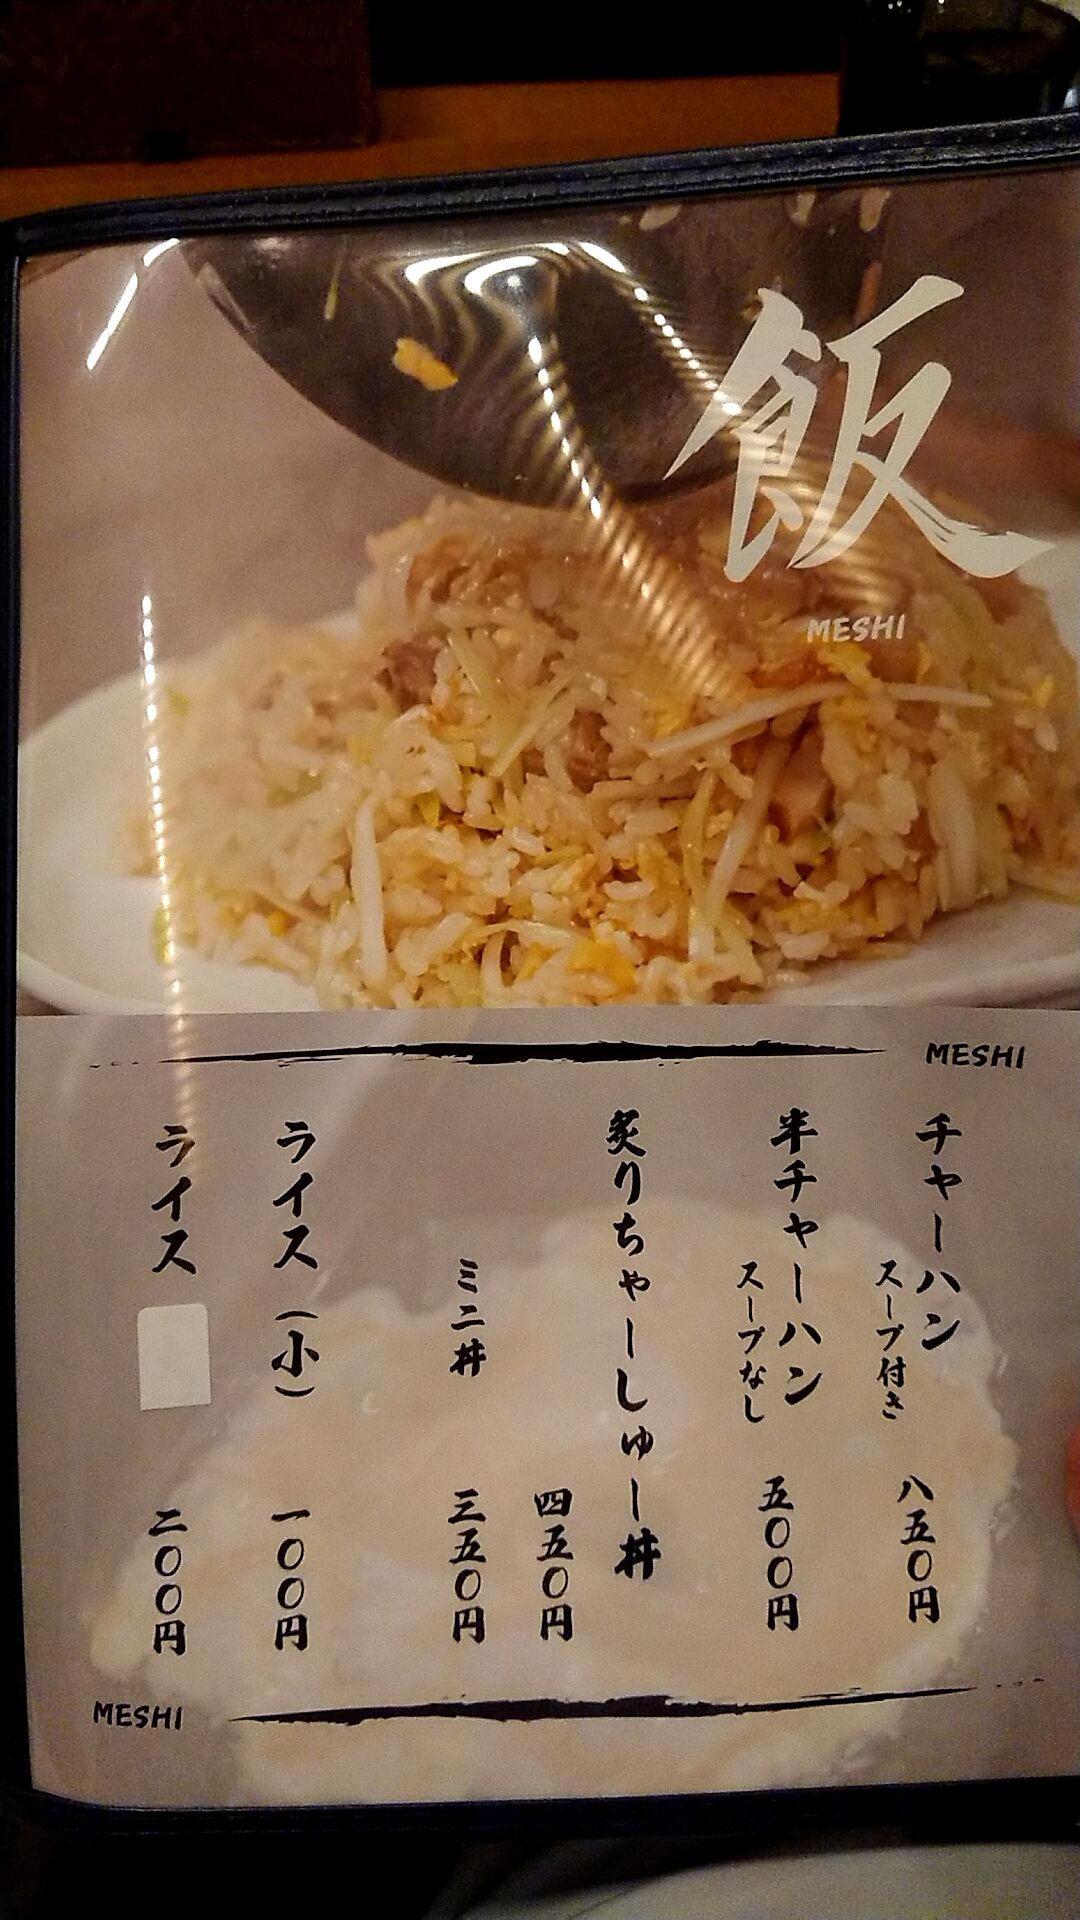 飯
MESHI
MESHI
チャーハン
スープ付き
八五〇円
半チャーハン
スープなし
五〇〇円
炙りちゃーしゅー丼
四五〇円
ミニ丼
三五〇円
ライス（小）
一〇〇円
ライス
二〇〇円
MESHI